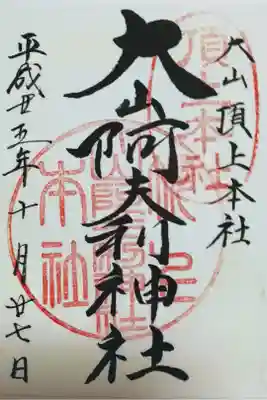 大山頂上本社
大山阿夫利神社
平成廿五年十月廿七日
頂上本社
本社